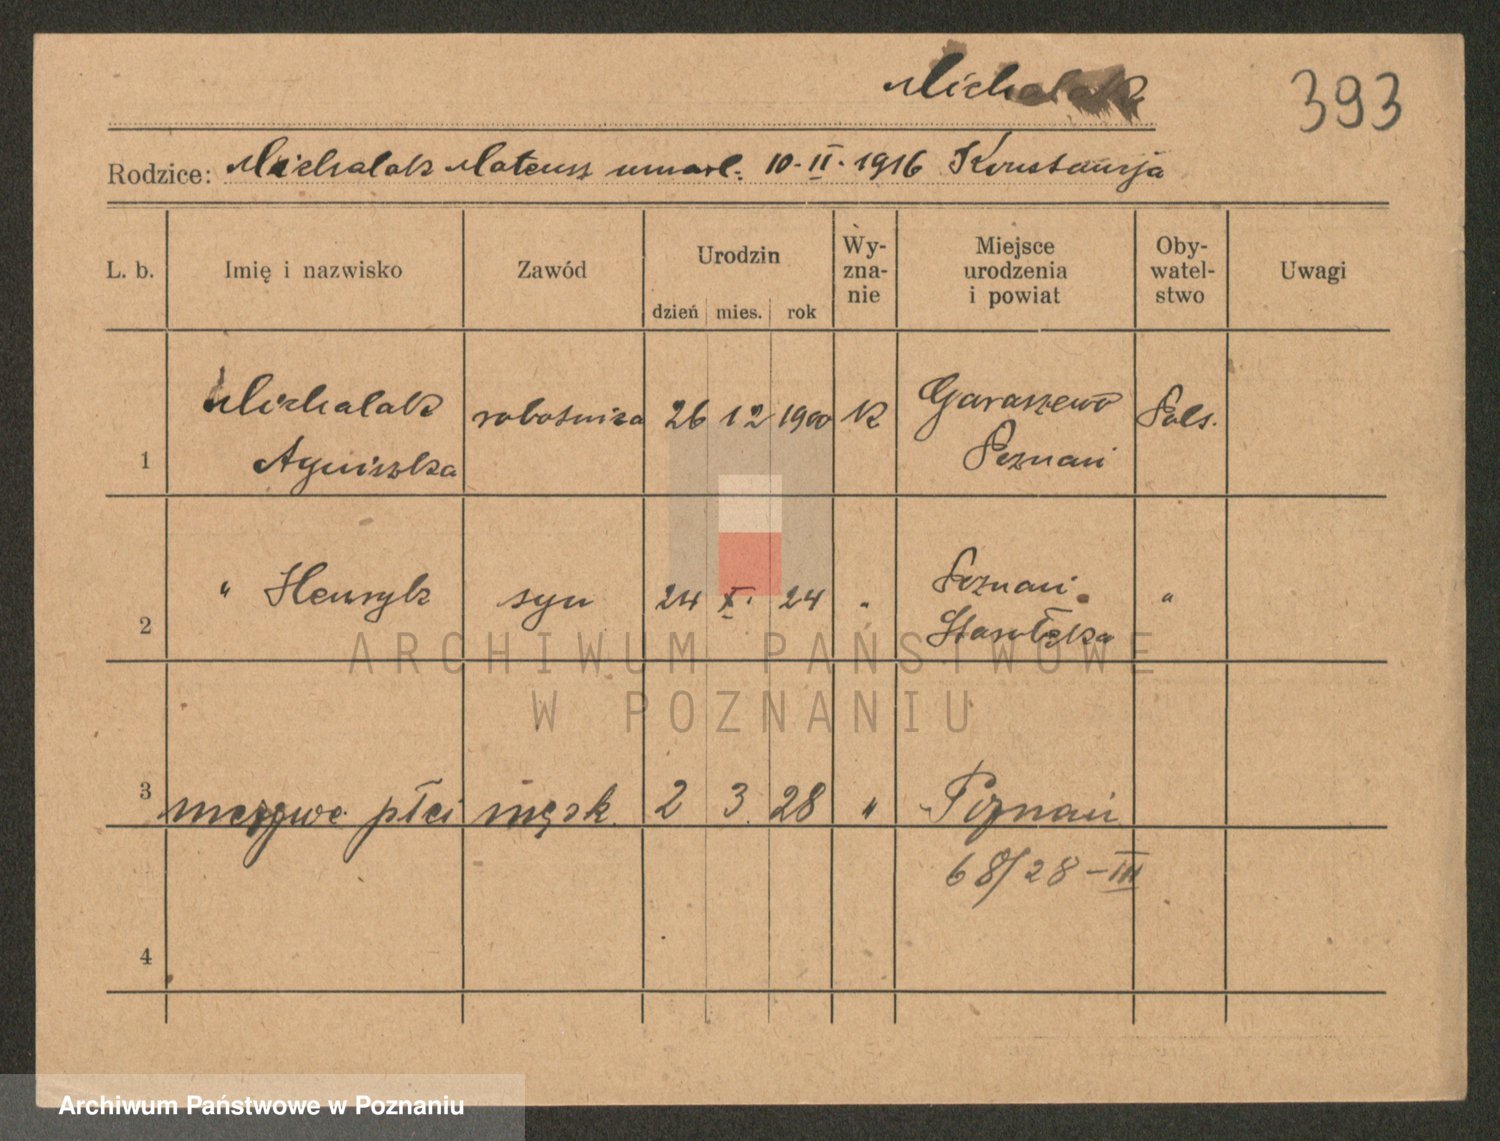 Michalak
393
Rodzice: Michalak Mateusz umarł. 10·II·1916 Konstancja
L. b. Imię i nazwisko Zawód Urodzin Wy- Miejsce Oby- Uwagi
zna- urodzenia watel-
nie i powiat stwo
dzień mies. rok
Michalak robotnica 26 12 1900 K Garaszewo Pols.
1 Agnieszka Poznań
" Henryk syn 24 X. 24 " Poznań. "
2 Starołęka
3 martwe płci męsk. 2 3. 28 " Poznań
68/28-III
4
ARCHIWUM PAŃSTWOWE
W POZNANIU
Archiwum Państwowe w Poznaniu